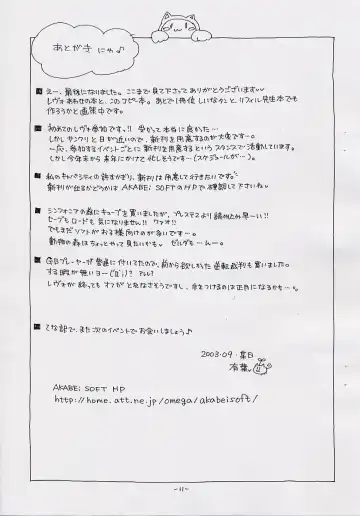 あとがき にゃ♪
えー、最後になりました。ここまで見て下さってありがとうございますvv
レヴォあわせの本と、このコピー本。あとしいなとリフィル先生本でも
作ろうかと画策中です。
初めてのレヴォ参加です。!! 受かって本当に良かった…
しかしサンクリと日が近いので、新刊を用意するのが大変です…。
一応、参加するイベントごとに新刊を用意するというスタンスで活動しています。
しかし今年末から来年にかけて忙しそうです…(スケジュールが…)。
私のキャパシティの許すかぎり、新刊は用意して行きたいです。
新刊が出るかどうかは AKABEi SOFTのHPで確認して下さいね。
シンフォニアの為にキューブを買いましたが、プレステより読み込み早ーい!!
セーブもロードも気になりません!! ワァオ!!
でもまだソフトがお子様向けのが多いです…。
動物の森はちょっとやって見たいかも。ゼルダも…んー。
GBプレーヤーが普通に付いてたので、前から欲しかった逆転裁判も買いました。
する暇が無いヨー
レヴォが終ってもオフが
てな部で、また次のイベントでお会いしましょう♪
2003・09・某日
有葉
AKABEi SOFT HP
http://home.att.ne.jp/omega/akabeisoft/
-11-